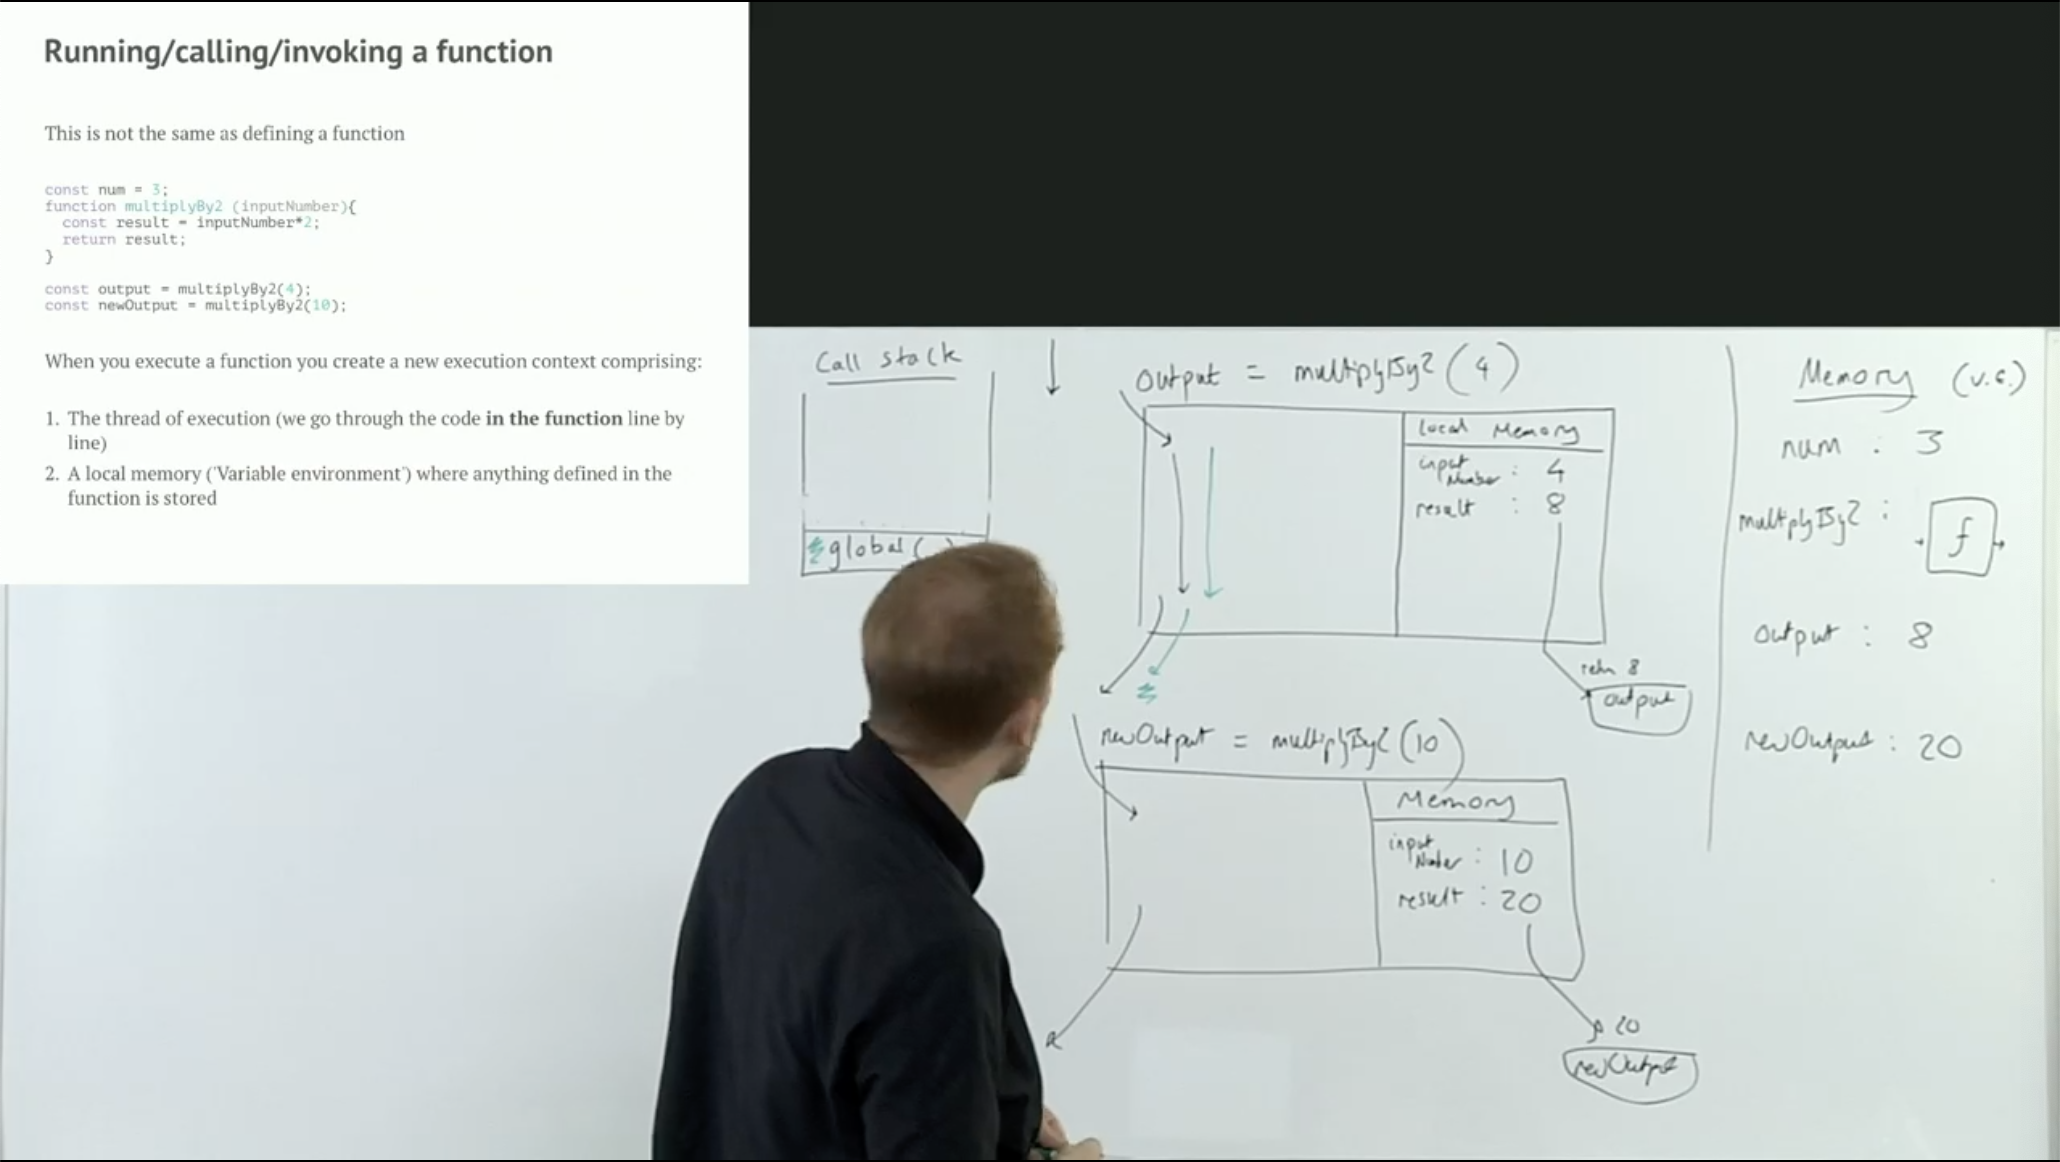 Running/calling/invoking a function
This is not the same as defining a function
const num = 3;
function multiplyBy2 (inputNumber){
const result = inputNumber*2;
return result;
}
const output = multiplyBy2(4);
const newOutput = multiplyBy2(10);
When you execute a function you create a new execution context comprising:
1. The thread of execution (we go through the code in the function line by
line)
2. A local memory ('Variable environment') where anything defined in the
function is stored
Call stack
global (
output = multiplyBy2 (4)
Local Memory
input
Number : 4
result : 8
8
output
newOutput = multiplyBy2 (10)
Memory
input
Number : 10
result : 20
20
newOutput
Memory (v.e.)
num : 3
multiplyBy2 : f
output : 8
newOutput : 20